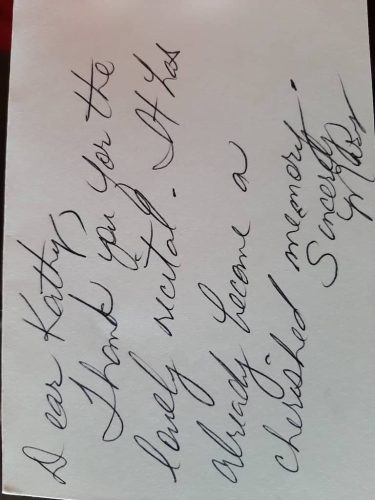 Dear Kathy,
Thank you for the
lovely recital. It has
already become a
cherished memory.
Sincerely,
Mary